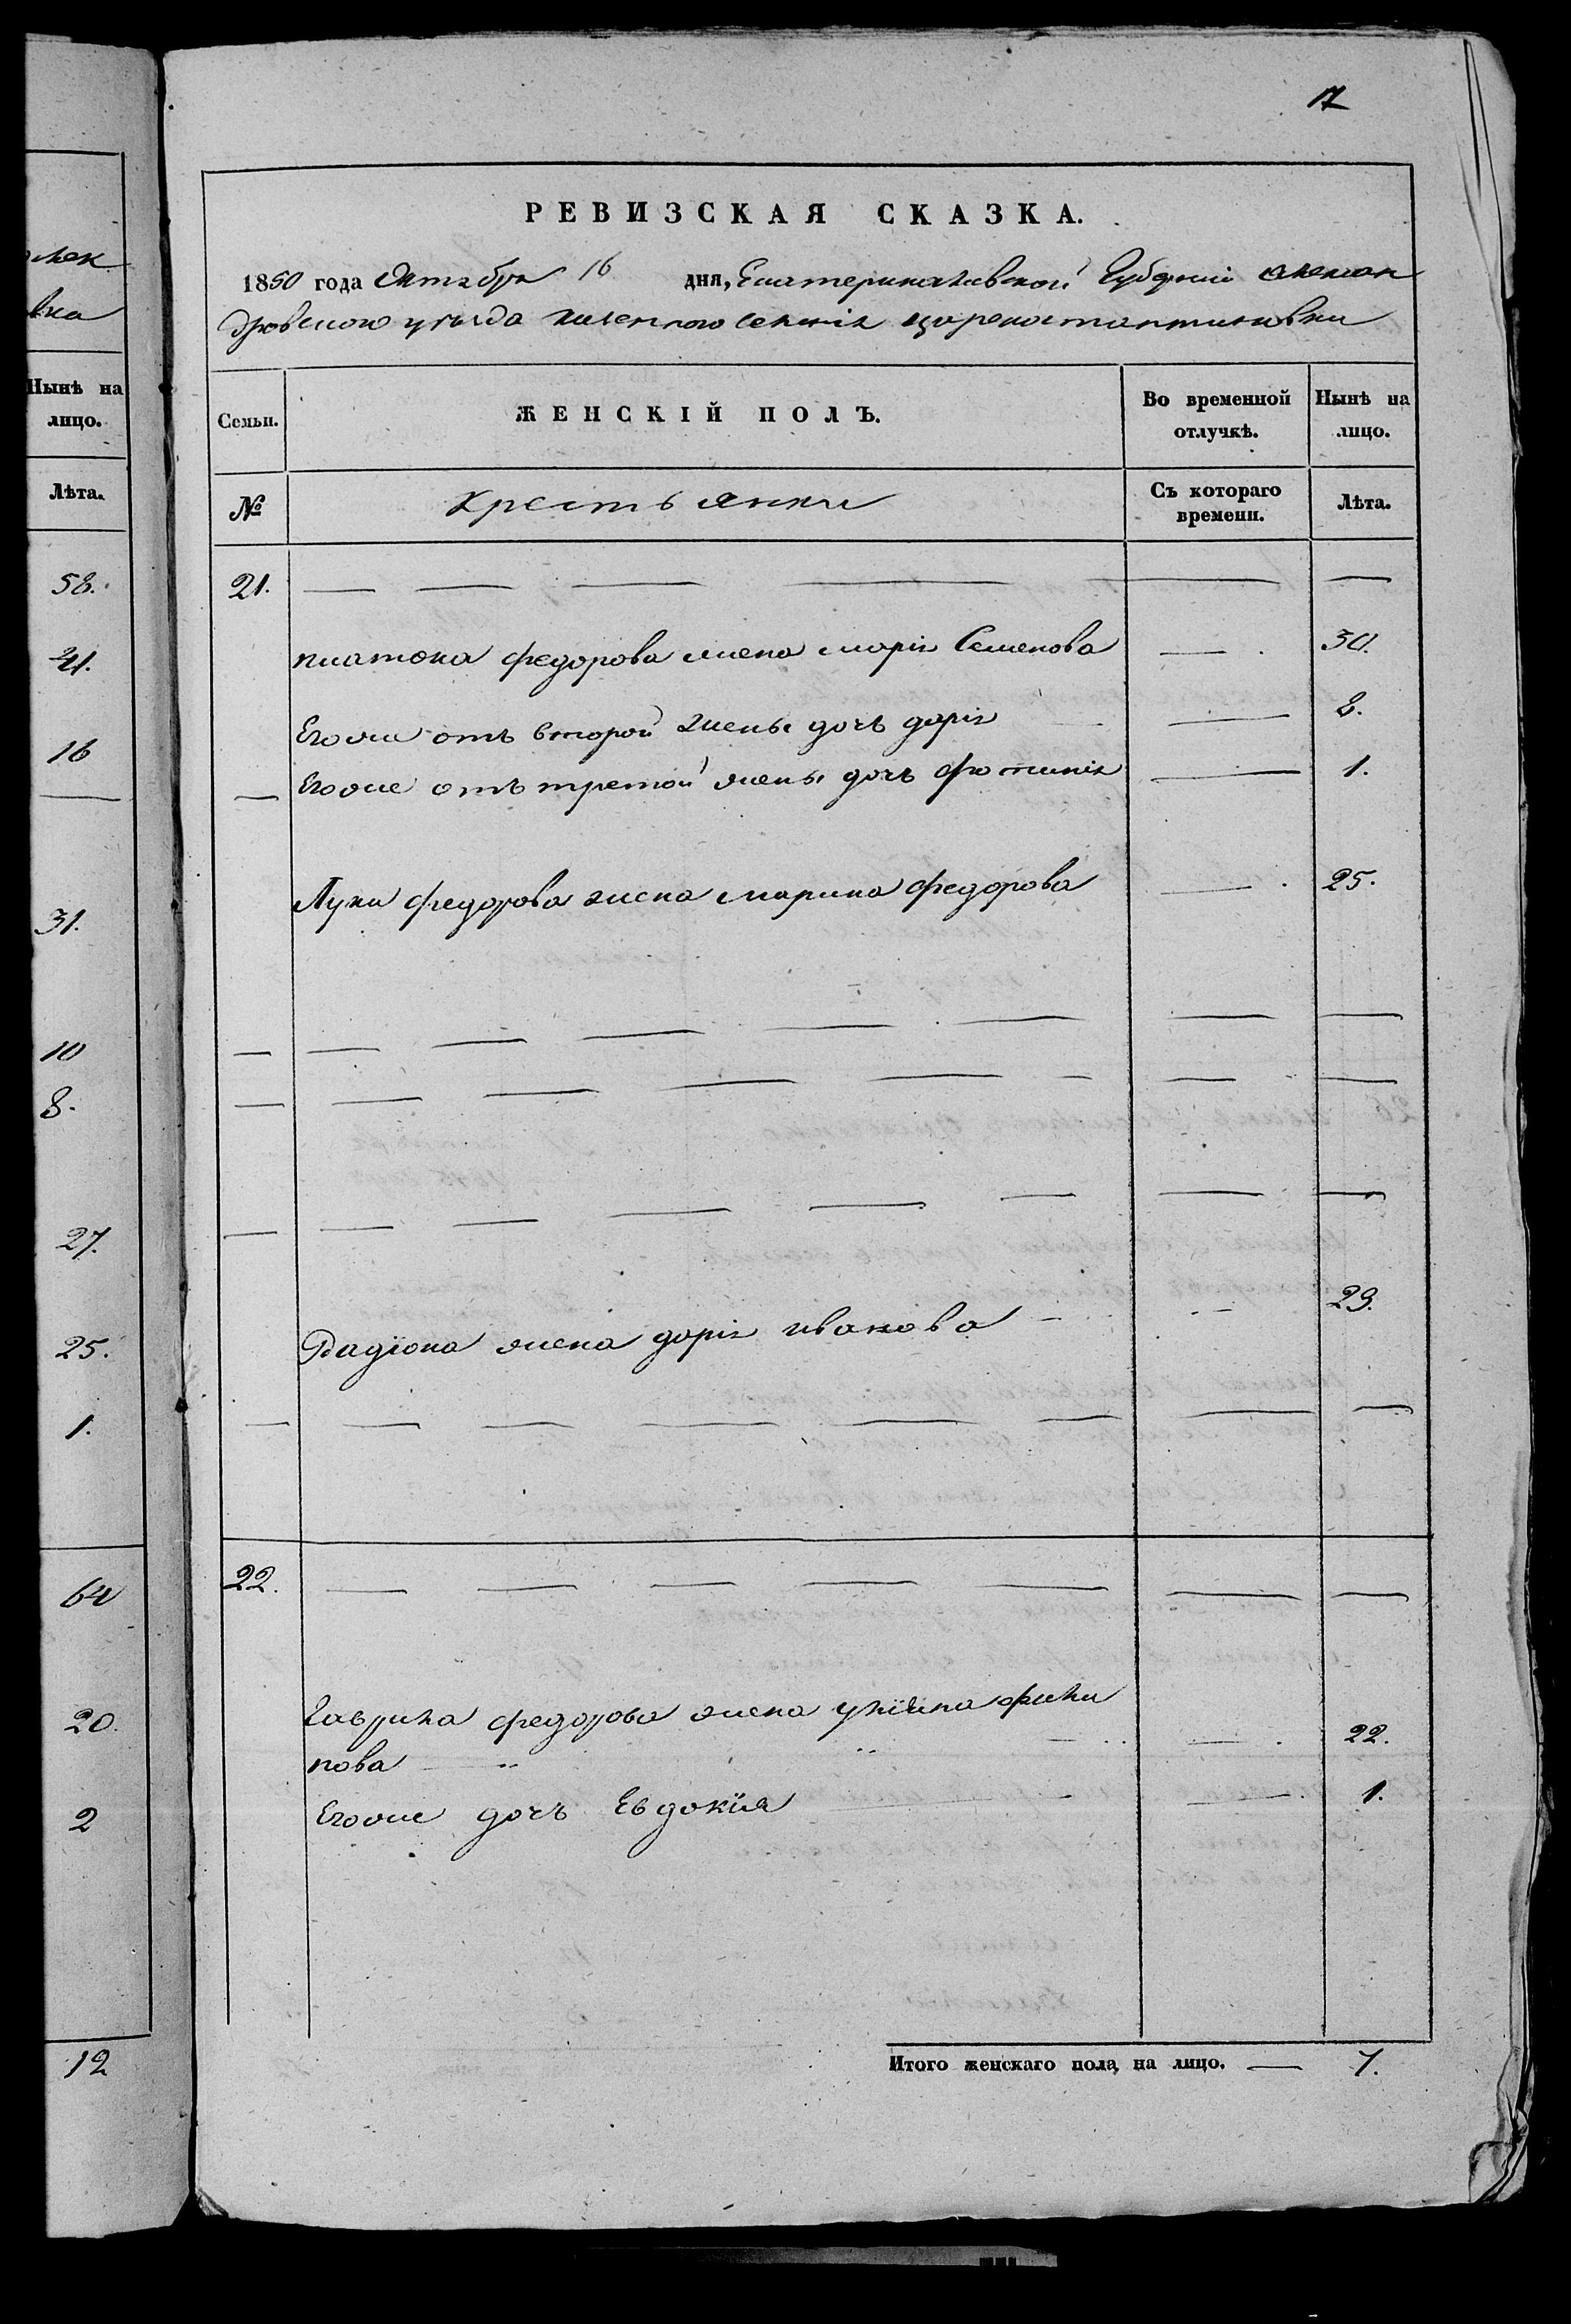 17
РЕВИЗСКАЯ СКАЗКА.
1850 года Октября 16 дня, Екатеринославской Губерніи Алексан
дровского уѣзда казенного селенія Цареконстантиновки
Семьи. ЖЕНСКІЙ ПОЛЪ. Во временной отлучкѣ. Нынѣ на лицо.
№ Крестьянки Съ котораго времени. Лѣта.
21.
платона федорова жена марія Семенова 30.
Егоже отъ второй жены дочь дарія 8.
Егоже отъ третой жены дочь фотинія 1.
Луки федорова жена марина федорова 25.
Радіона жена дарія иванова 29.
22.
Гаврила федорова жена уліяна фили
пова 22.
Егоже дочь Евдокія 1.
Итого женскаго пола, на лицо. 7.
вка
Нынѣ на
лицо.
Лѣта.
58.
21.
16
31.
10
8.
27.
25.
1.
64
20.
2
12